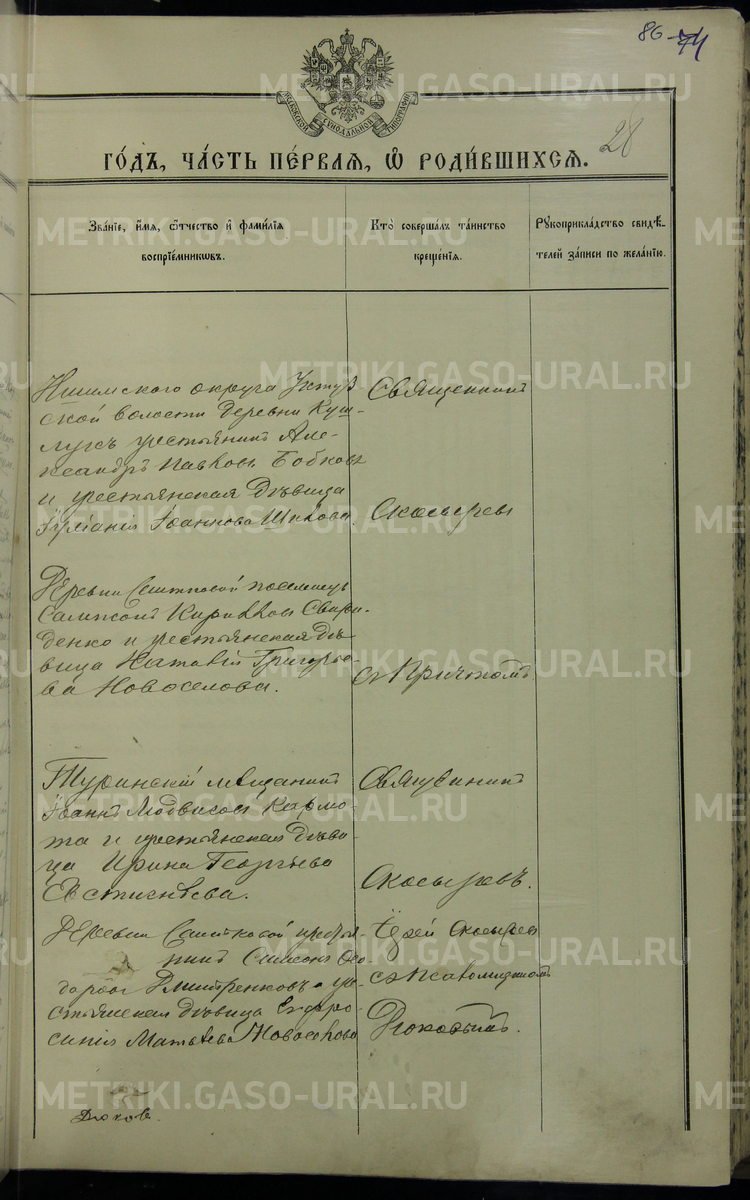 86 74
28
МОСКОВСКОЙ СѴНОДАЛЬНОЙ ТИПОГРАФІИ
ГО́ДЪ, ЧА́СТЬ ПЕ́РВАѦ, Ѽ РОДИ́ВШИХСѦ.
Зва́нїе, и҆́мѧ, ѻ҆́тчество и҆ фами́лїѧ воспрїе́мникѡвъ.
Кто̀ соверша́лъ та́инство креще́нїѧ.
Рꙋкоприкла́дство свидѣ́телей за́писи по жела́нїю.
Ишимскаго округа
ской волости деревни Куш-
лукъ крестьянинъ Але-
ксандръ Павловъ Бобковъ
и крестьянская дѣвица
Іоаннова
Священникъ
Скосыревъ
Деревни Саитковой поселенецъ
Сампсонъ Кирилловъ Свири-
денко и крестьянская дѣ-
вица Наталія Григорье-
ва Новоселова.
съ Причтомъ
Туринскій мѣщанинъ
Іоаннъ
и крестьянская дѣви-
ца Ирина Георгіева
Евстигнѣева.
Священникъ
Скосыревъ.
Деревни Саитковой крестья-
нинъ Симеонъ Ѳео-
доровъ Дмитренковъ и кре-
стьянская дѣвица Евфро-
синія Матѳеева Новоселова
Іерей Скосыревъ
съ псаломщикомъ
Дюковымъ.
Дюковъ.
METRIKI.GASO-URAL.RU